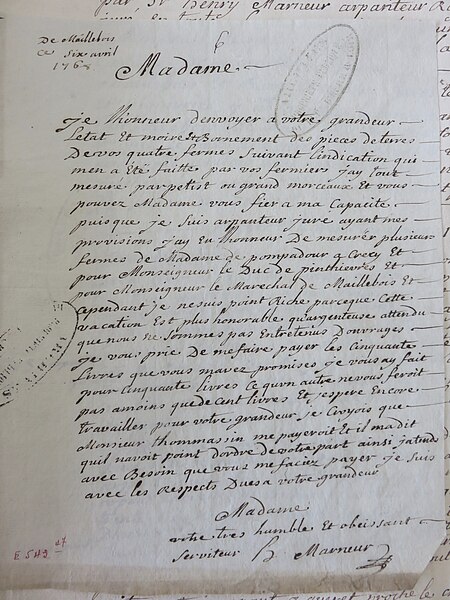 par Sr henry Marneur arpanteur
De Maillebois
ce six avril
1768
Madame
Je Lhonneur denvoyer a votre grandeur
Letat Et moire Et Bornement des pieces de terres
De vos quatre fermes Suivant Lindication qui
men a Eté faitte par vos fermiers Jay tout
mesuré par petist ou grand morceaux Et vous
pouvez Madame vous fier a ma Capacité
puis que je Suis arpanteur juré ayant mes
provisions Jay Eu Lhonneur De mesurér plusieur
fermes de Madame de pompadour a Crecy Et
pour Monseigneur Le Duc de pinthievres Et
pour Monseigneur Le Marechal de Maillebois Et
cependant Je ne suis point Riche parceque Cette
vacation Est plus honorable quargenteuse attendu
que nous ne Sommes pas Entretenus Douvrages
Je vous prie De me faire payer les Cinquante
Livres que vous mavez promises Je vous ay fait
pour Cinquante Livres ce qun autre ne vous feroit
pas amoins que de Cent Livres Et Jespere Encore
travailler pour votre grandeur Je Croyois que
Monsieur thommassin me payeroit Et il ma dit
quil navoit point dordre de votre part ainsi Jatends
avec Besoin que vous me faciez payer Je Suis
avec les Respects Dues a votre grandeur
Madame
votre tres humble Et obeissant
Serviteur h Marneur
E 549